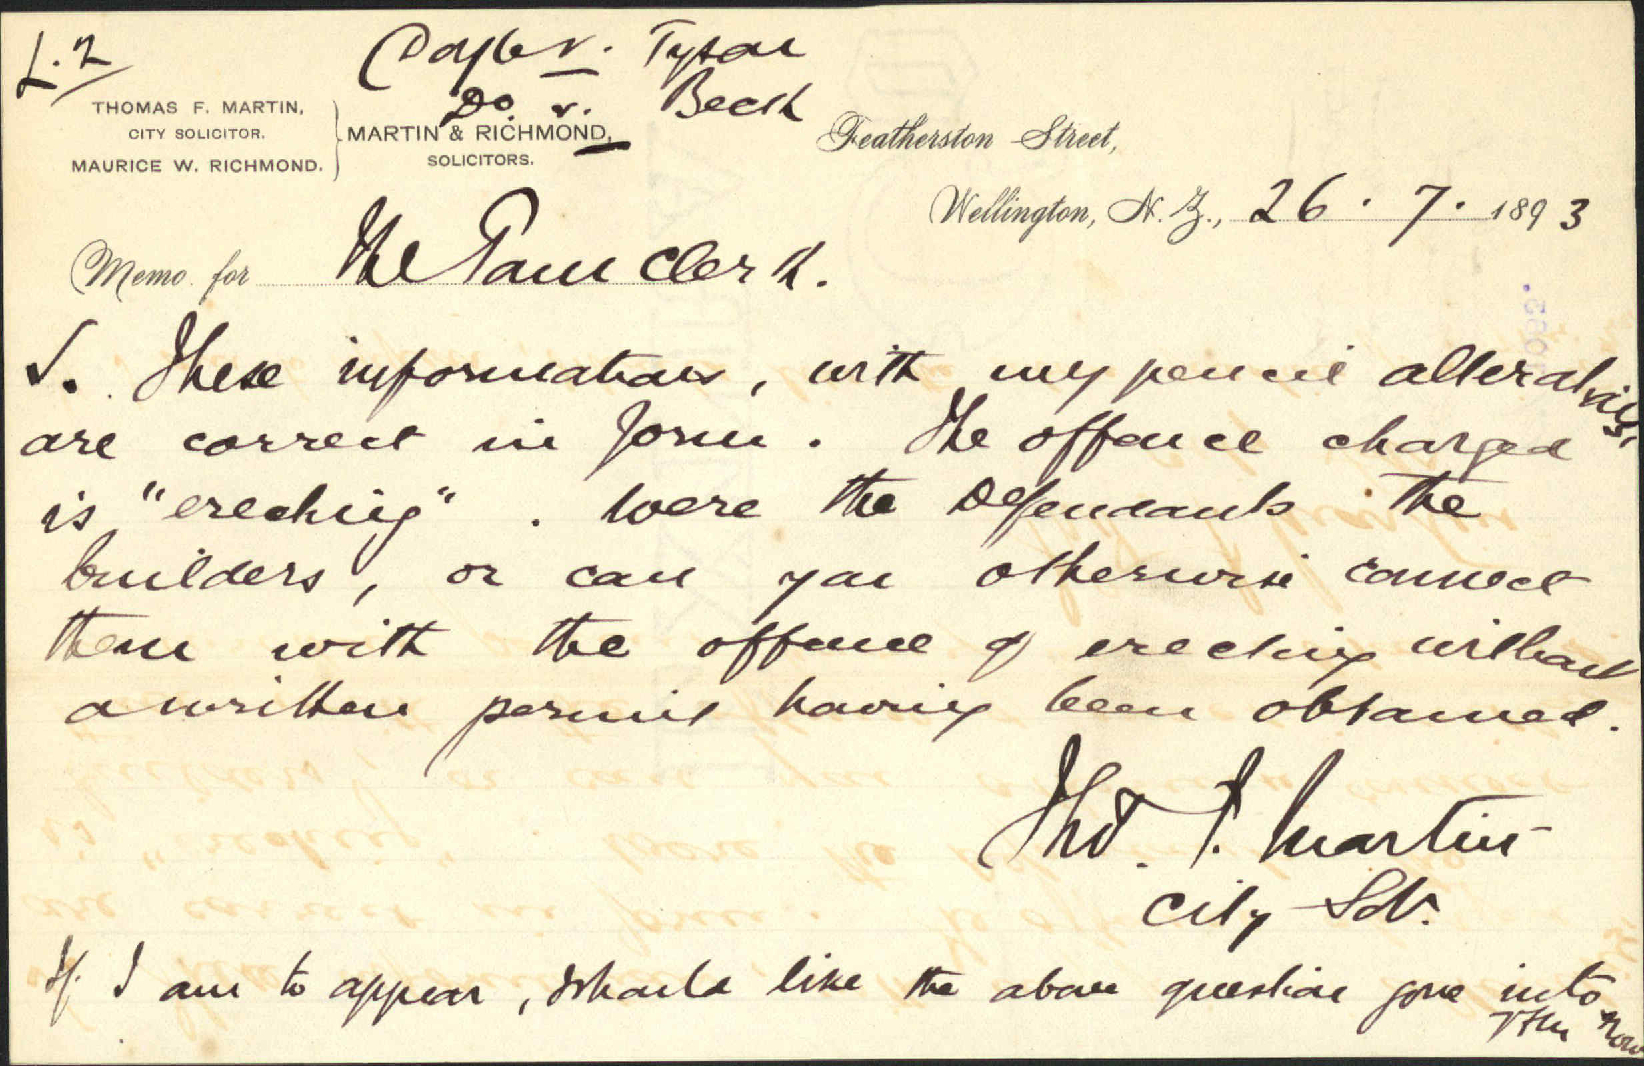 L.2
Doyle v. Tysar
Do. v. Beck
THOMAS F. MARTIN,
CITY SOLICITOR.
MAURICE W. RICHMOND.
MARTIN & RICHMOND,
SOLICITORS.
Featherston Street,
Wellington, N.Z., 26.7.1893
Memo for The Town Clerk.
These informations, with my pencil alterations,
are correct in form. The offence charged
is "erecting". Were the Defendants the
builders, or can you otherwise connect
them with the offence of erecting without
a written permit having been obtained.
Thos. F. Martin
City Solr.
If I am to appear, I should like the above question gone into
now
TFM